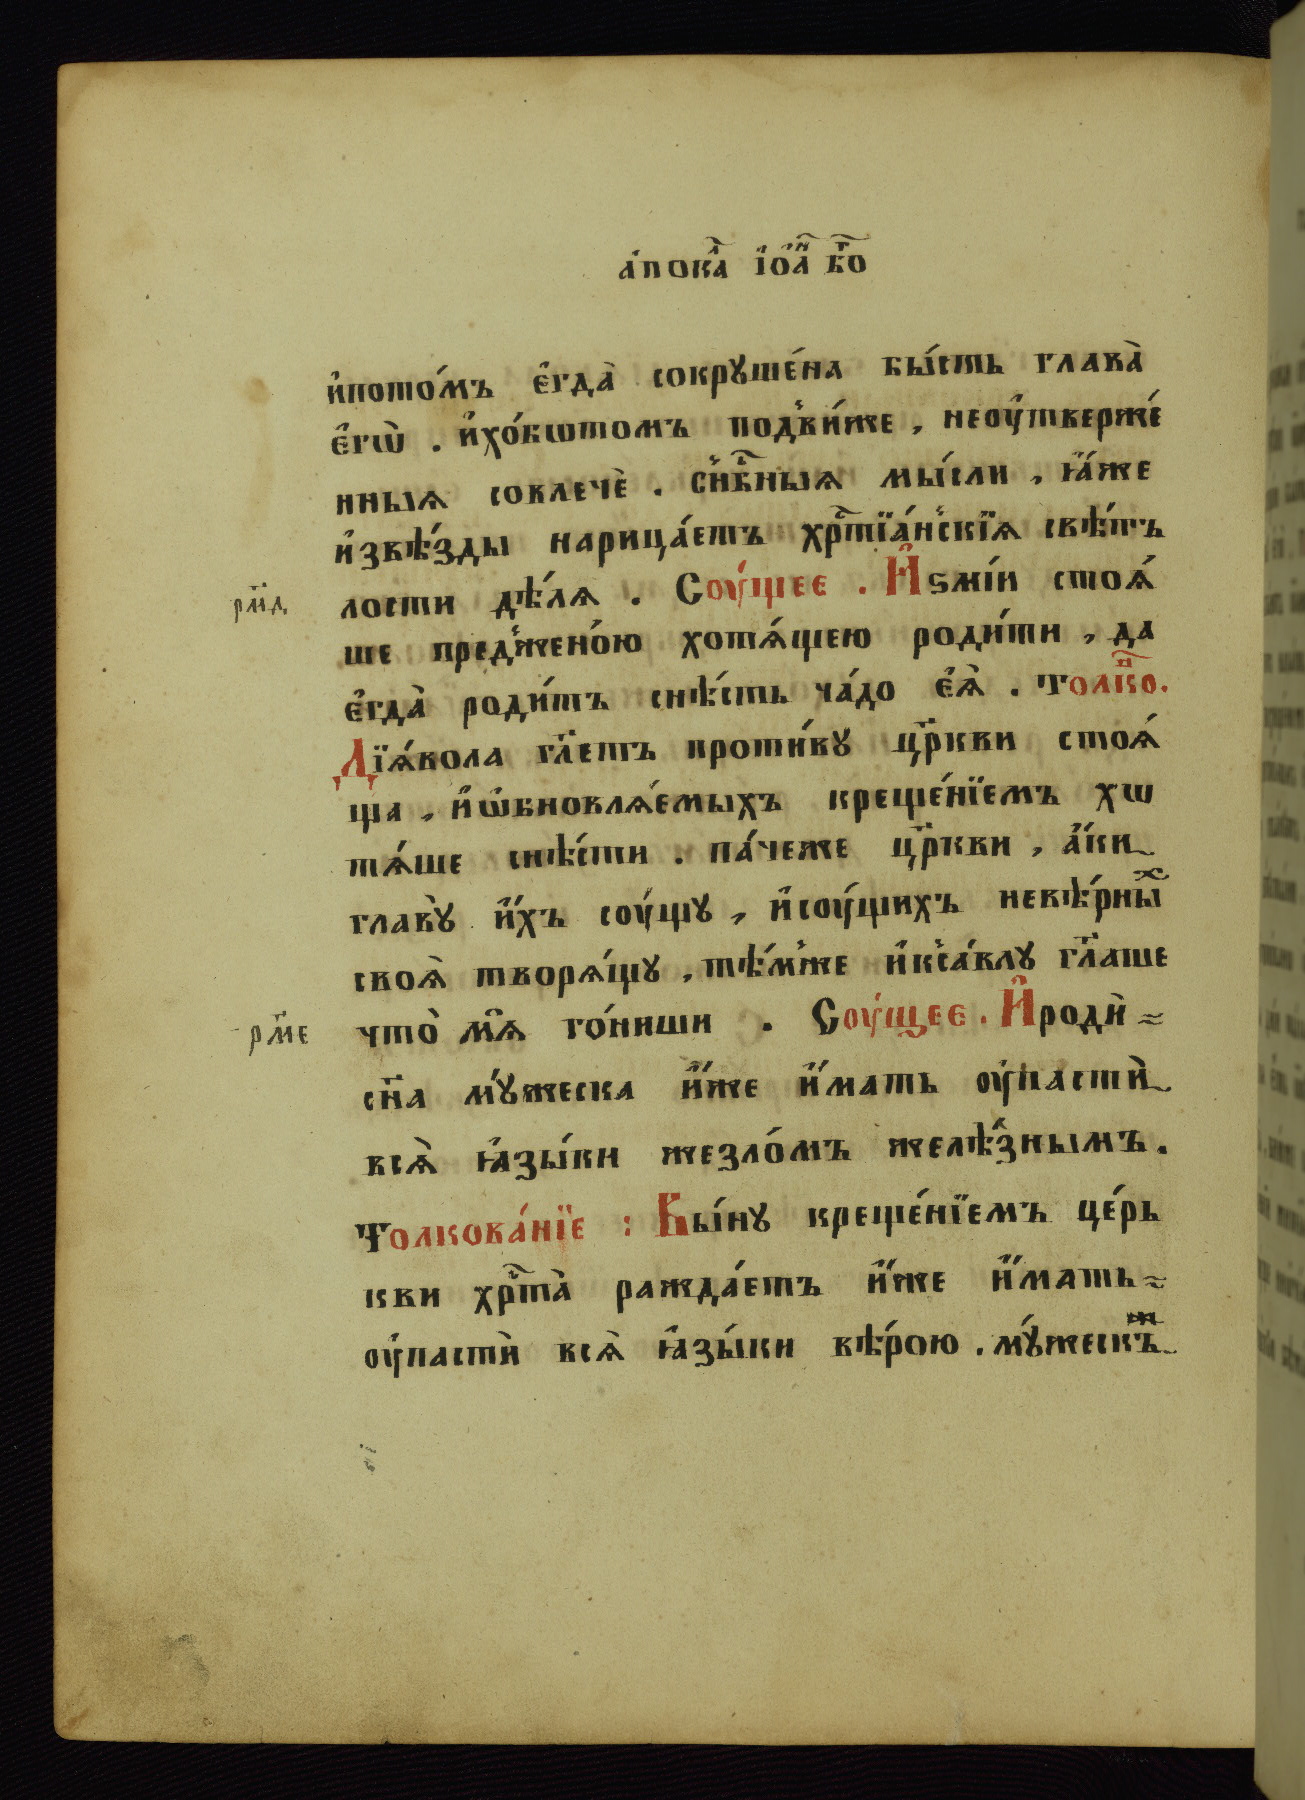 а҆пока̑л і҆ѡа̑н бг҃о
и҆пото́мъ є҆гда̀ сокрꙋше́на бы́сть глава̀
є҆гѡ̀ . и҆хо́бѡтомъ подви́же , неоу҆тверже́
нныѧ совлечѐ . си҆б҃ныѧ мы́сли , ꙗ҆́же
и҆звѣ́зды нарица́етъ хрⷭ҇тїа́нскїѧ свѣ́тъ
лости дѣ́лѧ . Соу́щее . И҆ ѕмі́и стоѧ́
рм҃д
ше преджено́ю хотѧ́щею роди́ти , да
є҆гда̀ роди́тъ снѣ́сть ча́до є҆ѧ̀ . Толко̑в.
Дїѧ́вола гл҃етъ проти́вꙋ цр҃кви стоѧ́
ща , и҆ѡ҆бновлѧ́емыхъ креще́нїемъ хѡ
тѧ́ше снѣ́сти . па́чеже цр҃кви , а҆́ки
главꙋ̀ и҆́хъ соу́щꙋ , и҆соу́щихъ невѣ́рныⷯ
своѧ̀ творѧ́щꙋ , тѣ́мже и҆кса́влꙋ гл҃аше
что̀ мѧ̀ го́ниши . Соу́щее . И҆родѝ
рм҃е
сн҃а мꙋ́жеска и҆́же и҆́мать оу҆пастѝ
всѧ̀ ꙗ҆зы́ки жезло́мъ желѣ́знымъ .
Толкова́нїе : Вы́нꙋ креще́нїемъ це́рь
кви хрⷭ҇та̀ ражда́етъ и҆́же и҆́мать
оу҆пастѝ всѧ̀ ꙗ҆зы́ки вѣ́рою . мꙋ́жескъ